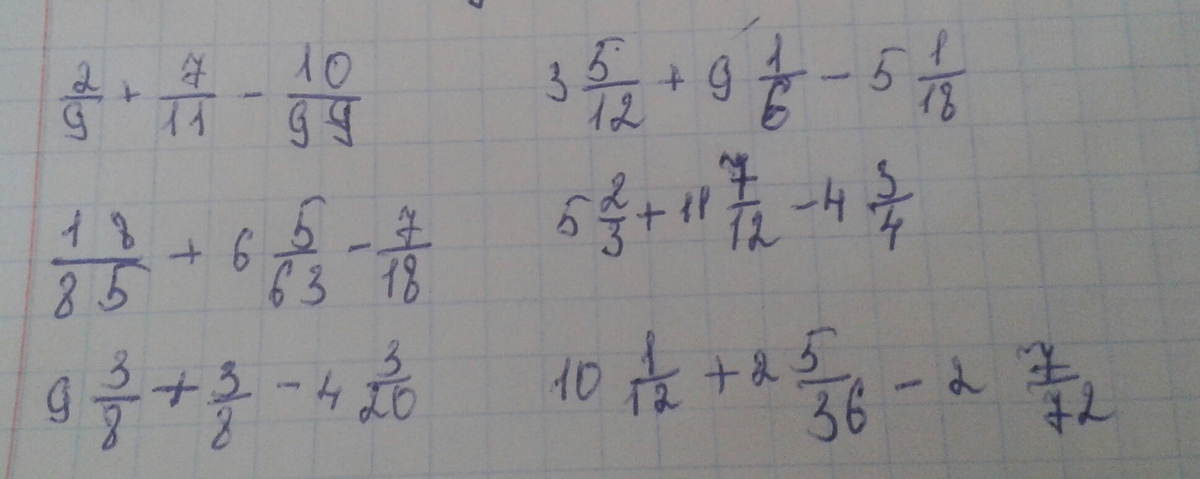 2/9 + 7/11 - 10/99
3 5/12 + 9 1/6 - 5 1/18
18/85 + 6 5/63 - 7/18
5 2/3 + 11 7/12 - 4 3/4
9 3/8 + 3/8 - 4 3/20
10 1/12 + 2 5/36 - 2 7/72